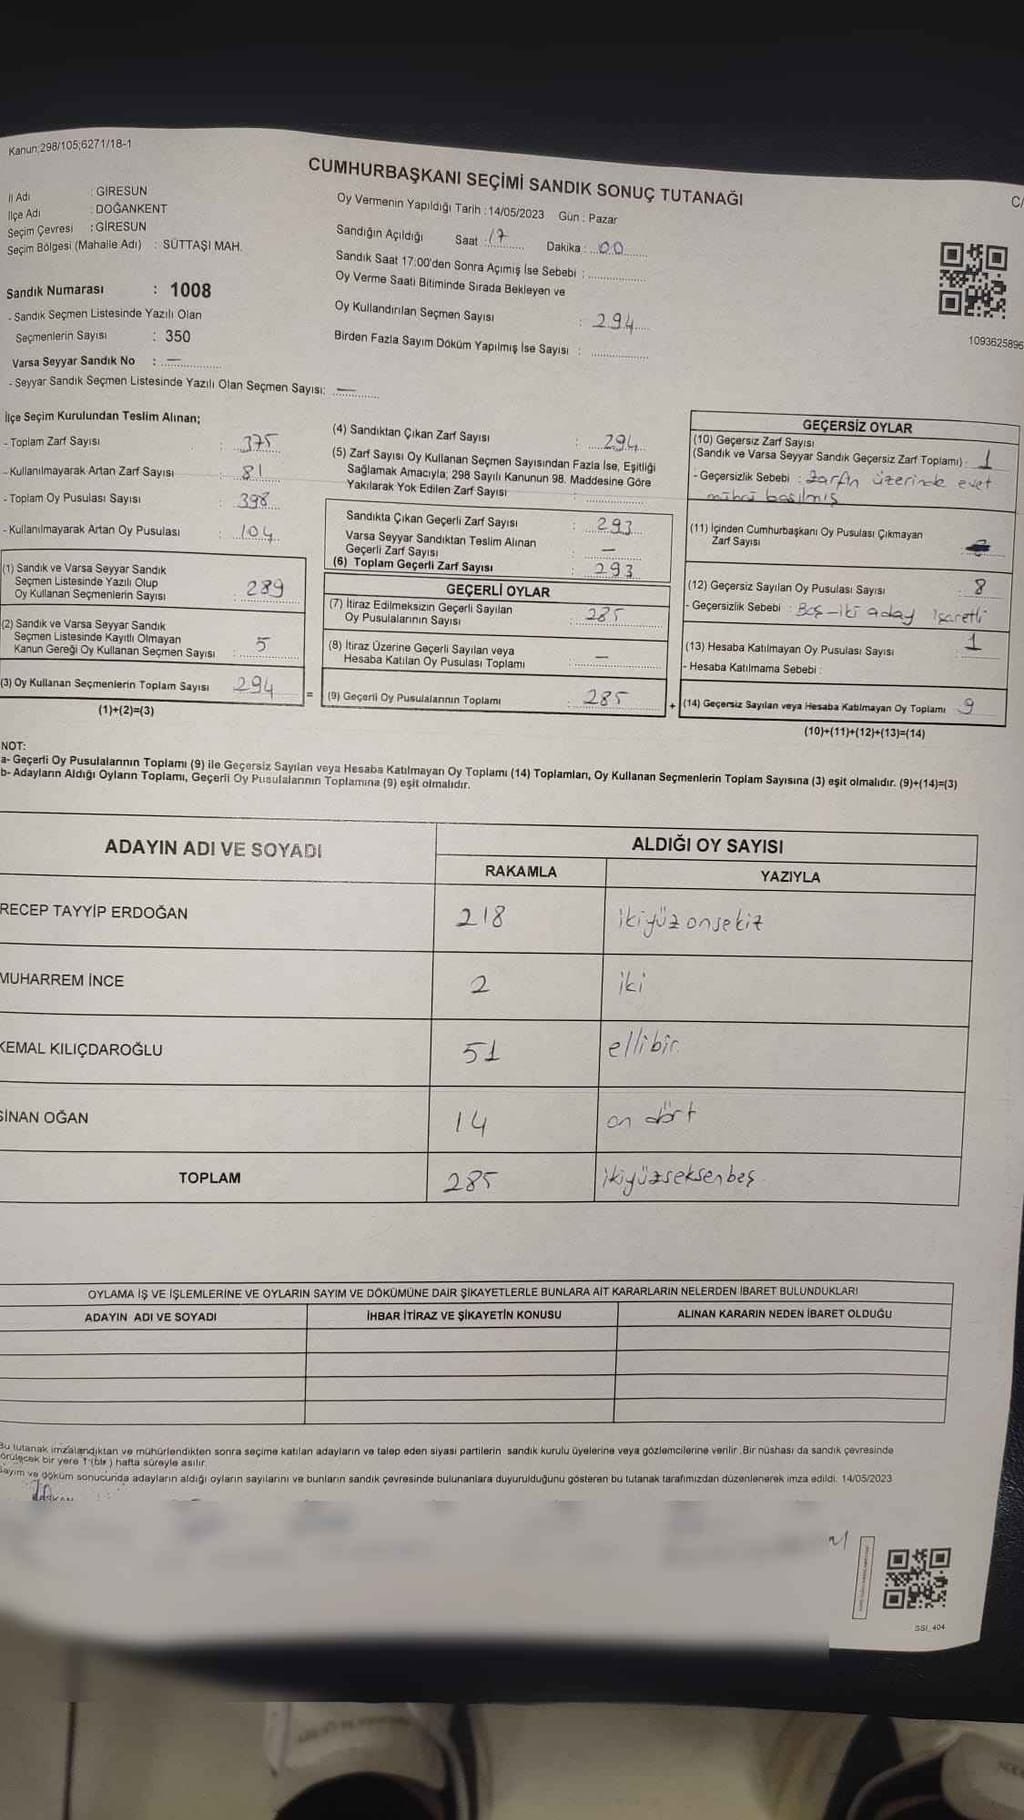 Kanun;298/105;6271/18-1
CUMHURBAŞKANI SEÇİMİ SANDIK SONUÇ TUTANAĞI
C/
İl Adı : GİRESUN
İlçe Adı : DOĞANKENT
Seçim Çevresi : GİRESUN
Seçim Bölgesi (Mahalle Adı) : SÜTTAŞI MAH.
Oy Vermenin Yapıldığı Tarih : 14/05/2023 Gün : Pazar
Sandığın Açıldığı Saat : 17 Dakika : 00
Sandık Saat 17:00'den Sonra Açımış İse Sebebi :
Oy Verme Saati Bitiminde Sırada Bekleyen ve
Oy Kullandırılan Seçmen Sayısı : 294
Birden Fazla Sayım Döküm Yapılmış İse Sayısı :
1093625896
Sandık Numarası : 1008
- Sandık Seçmen Listesinde Yazılı Olan
Seçmenlerin Sayısı : 350
Varsa Seyyar Sandık No : —
- Seyyar Sandık Seçmen Listesinde Yazılı Olan Seçmen Sayısı: —
İlçe Seçim Kurulundan Teslim Alınan;
- Toplam Zarf Sayısı : 375
- Kullanılmayarak Artan Zarf Sayısı : 81
- Toplam Oy Pusulası Sayısı : 398
- Kullanılmayarak Artan Oy Pusulası : 104
(1) Sandık ve Varsa Seyyar Sandık
Seçmen Listesinde Yazılı Olup
Oy Kullanan Seçmenlerin Sayısı : 289
(2) Sandık ve Varsa Seyyar Sandık
Seçmen Listesinde Kayıtlı Olmayan
Kanun Gereği Oy Kullanan Seçmen Sayısı : 5
(3) Oy Kullanan Seçmenlerin Toplam Sayısı 294
(1)+(2)=(3)
(4) Sandıktan Çıkan Zarf Sayısı : 294
(5) Zarf Sayısı Oy Kullanan Seçmen Sayısından Fazla İse, Eşitliği
Sağlamak Amacıyla; 298 Sayılı Kanunun 98. Maddesine Göre
Yakılarak Yok Edilen Zarf Sayısı :
Sandıkta Çıkan Geçerli Zarf Sayısı : 293
Varsa Seyyar Sandıktan Teslim Alınan
Geçerli Zarf Sayısı : —
(6) Toplam Geçerli Zarf Sayısı : 293
GEÇERLİ OYLAR
(7) İtiraz Edilmeksizin Geçerli Sayılan
Oy Pusulalarının Sayısı : 285
(8) İtiraz Üzerine Geçerli Sayılan veya
Hesaba Katılan Oy Pusulası Toplamı : —
= (9) Geçerli Oy Pusulalarının Toplamı : 285
GEÇERSİZ OYLAR
(10) Geçersiz Zarf Sayısı
(Sandık ve Varsa Seyyar Sandık Geçersiz Zarf Toplamı) : 1
- Geçersizlik Sebebi : Zarfın üzerinde evet
mührü basılmış
(11) İçinden Cumhurbaşkanı Oy Pusulası Çıkmayan
Zarf Sayısı
(12) Geçersiz Sayılan Oy Pusulası Sayısı : 8
- Geçersizlik Sebebi : Boş-iki aday işaretli
(13) Hesaba Katılmayan Oy Pusulası Sayısı : 1
- Hesaba Katılmama Sebebi :
+ (14) Geçersiz Sayılan veya Hesaba Katılmayan Oy Toplamı 9
(10)+(11)+(12)+(13)=(14)
NOT:
a- Geçerli Oy Pusulalarının Toplamı (9) ile Geçersiz Sayılan veya Hesaba Katılmayan Oy Toplamı (14) Toplamları, Oy Kullanan Seçmenlerin Toplam Sayısına (3) eşit olmalıdır. (9)+(14)=(3)
b- Adayların Aldığı Oyların Toplamı, Geçerli Oy Pusulalarının Toplamına (9) eşit olmalıdır.
ADAYIN ADI VE SOYADI ALDIĞI OY SAYISI
RAKAMLA YAZIYLA
RECEP TAYYİP ERDOĞAN 218 ikiyüzonsekiz
MUHARREM İNCE 2 iki
KEMAL KILIÇDAROĞLU 51 ellibir
SİNAN OĞAN 14 on dört
TOPLAM 285 ikiyüzseksenbeş
OYLAMA İŞ VE İŞLEMLERİNE VE OYLARIN SAYIM VE DÖKÜMÜNE DAİR ŞİKAYETLERLE BUNLARA AİT KARARLARIN NELERDEN İBARET BULUNDUKLARI
ADAYIN ADI VE SOYADI İHBAR İTİRAZ VE ŞİKAYETİN KONUSU ALINAN KARARIN NEDEN İBARET OLDUĞU
Bu tutanak imzalandıktan ve mühürlendikten sonra seçime katılan adayların ve talep eden siyasi partilerin sandık kurulu üyelerine veya gözlemcilerine verilir. Bir nüshası da sandık çevresinde
görülecek bir yere 1 (bir) hafta süreyle asılır.
Sayım ve döküm sonucunda adayların aldığı oyların sayılarını ve bunların sandık çevresinde bulunanlara duyurulduğunu gösteren bu tutanak tarafımızdan düzenlenerek imza edildi. 14/05/2023
SSI_404